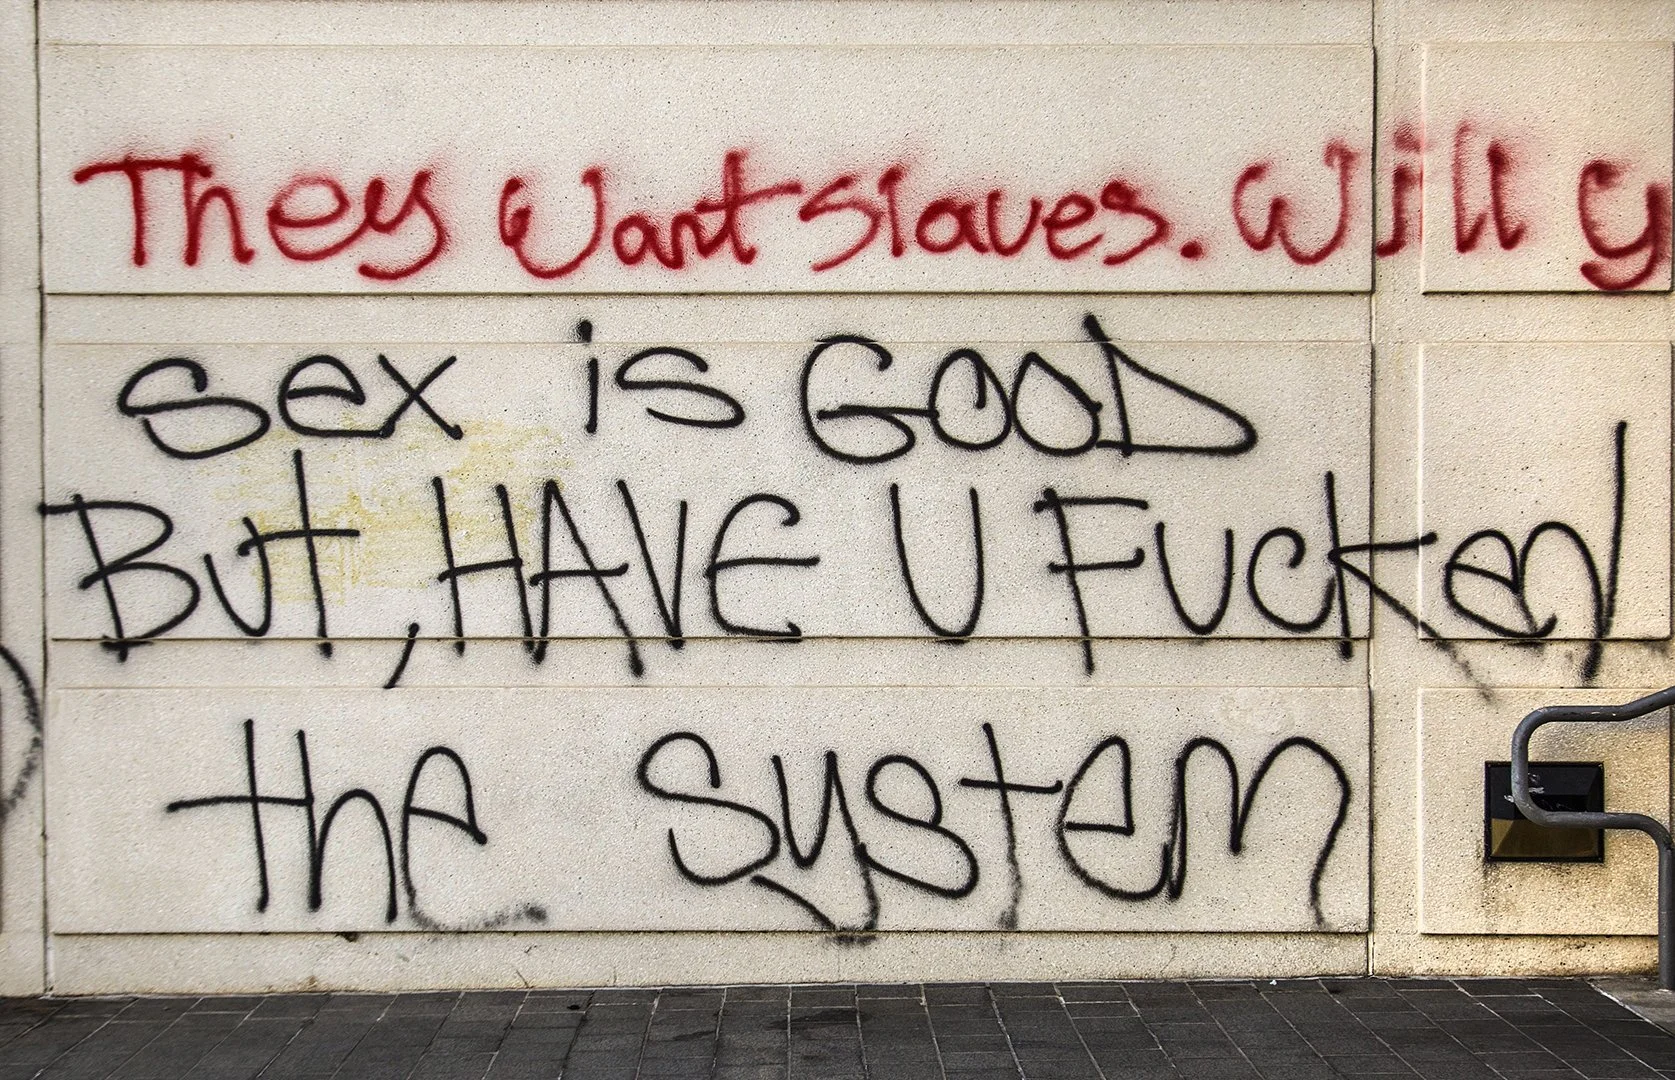 They Want slaves. Will y
sex is GOOD
But, HAVE U Fucked
the system